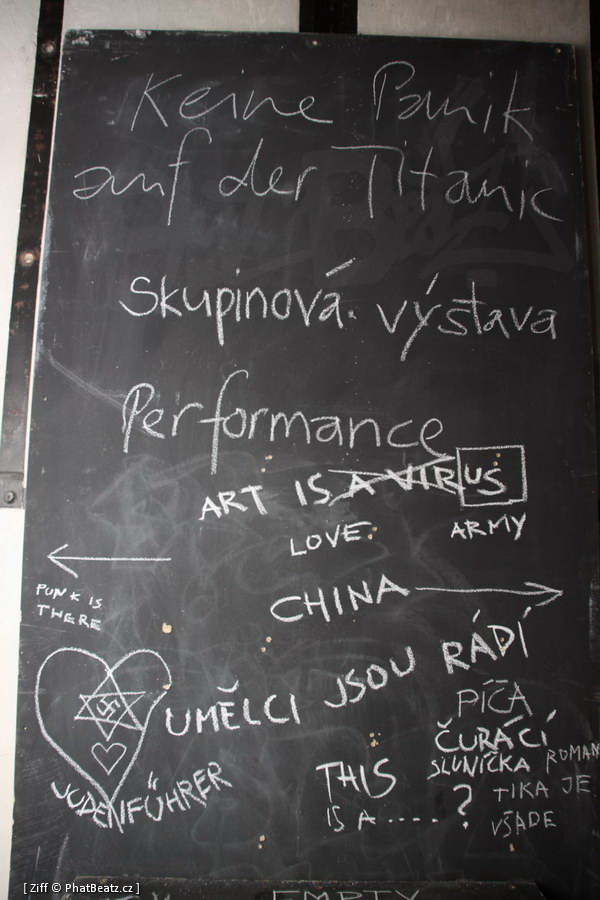 Keine Panik
auf der Titanic
Skupinová výstava
Performance
ART IS A VIRUS
LOVE ARMY
PUNK IS
THERE
CHINA
UMĚLCI JSOU RÁDÍ
JUDENFÜHRER
THIS
IS A ..... ?
PÍČA
ČURÁCÍ
SLUNÍČKA
ROMAN
TIKA JE
VŠADE
EMPTY
[ Ziff © PhatBeatz.cz ]